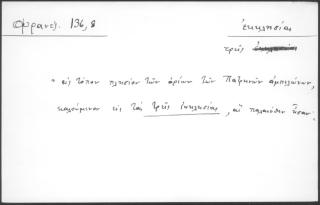 Φραντζ. 136, 8
ἐκκλησίας
τρεῖς
εἰς τόπον πλησίον τῶν ὁρίων τῶν Πατρηνῶν ἀμπελώνων,
καλούμενον εἰς τὰς Τρεῖς ἐκκλησίας, αἳ παλαιόθεν ἦσαν.